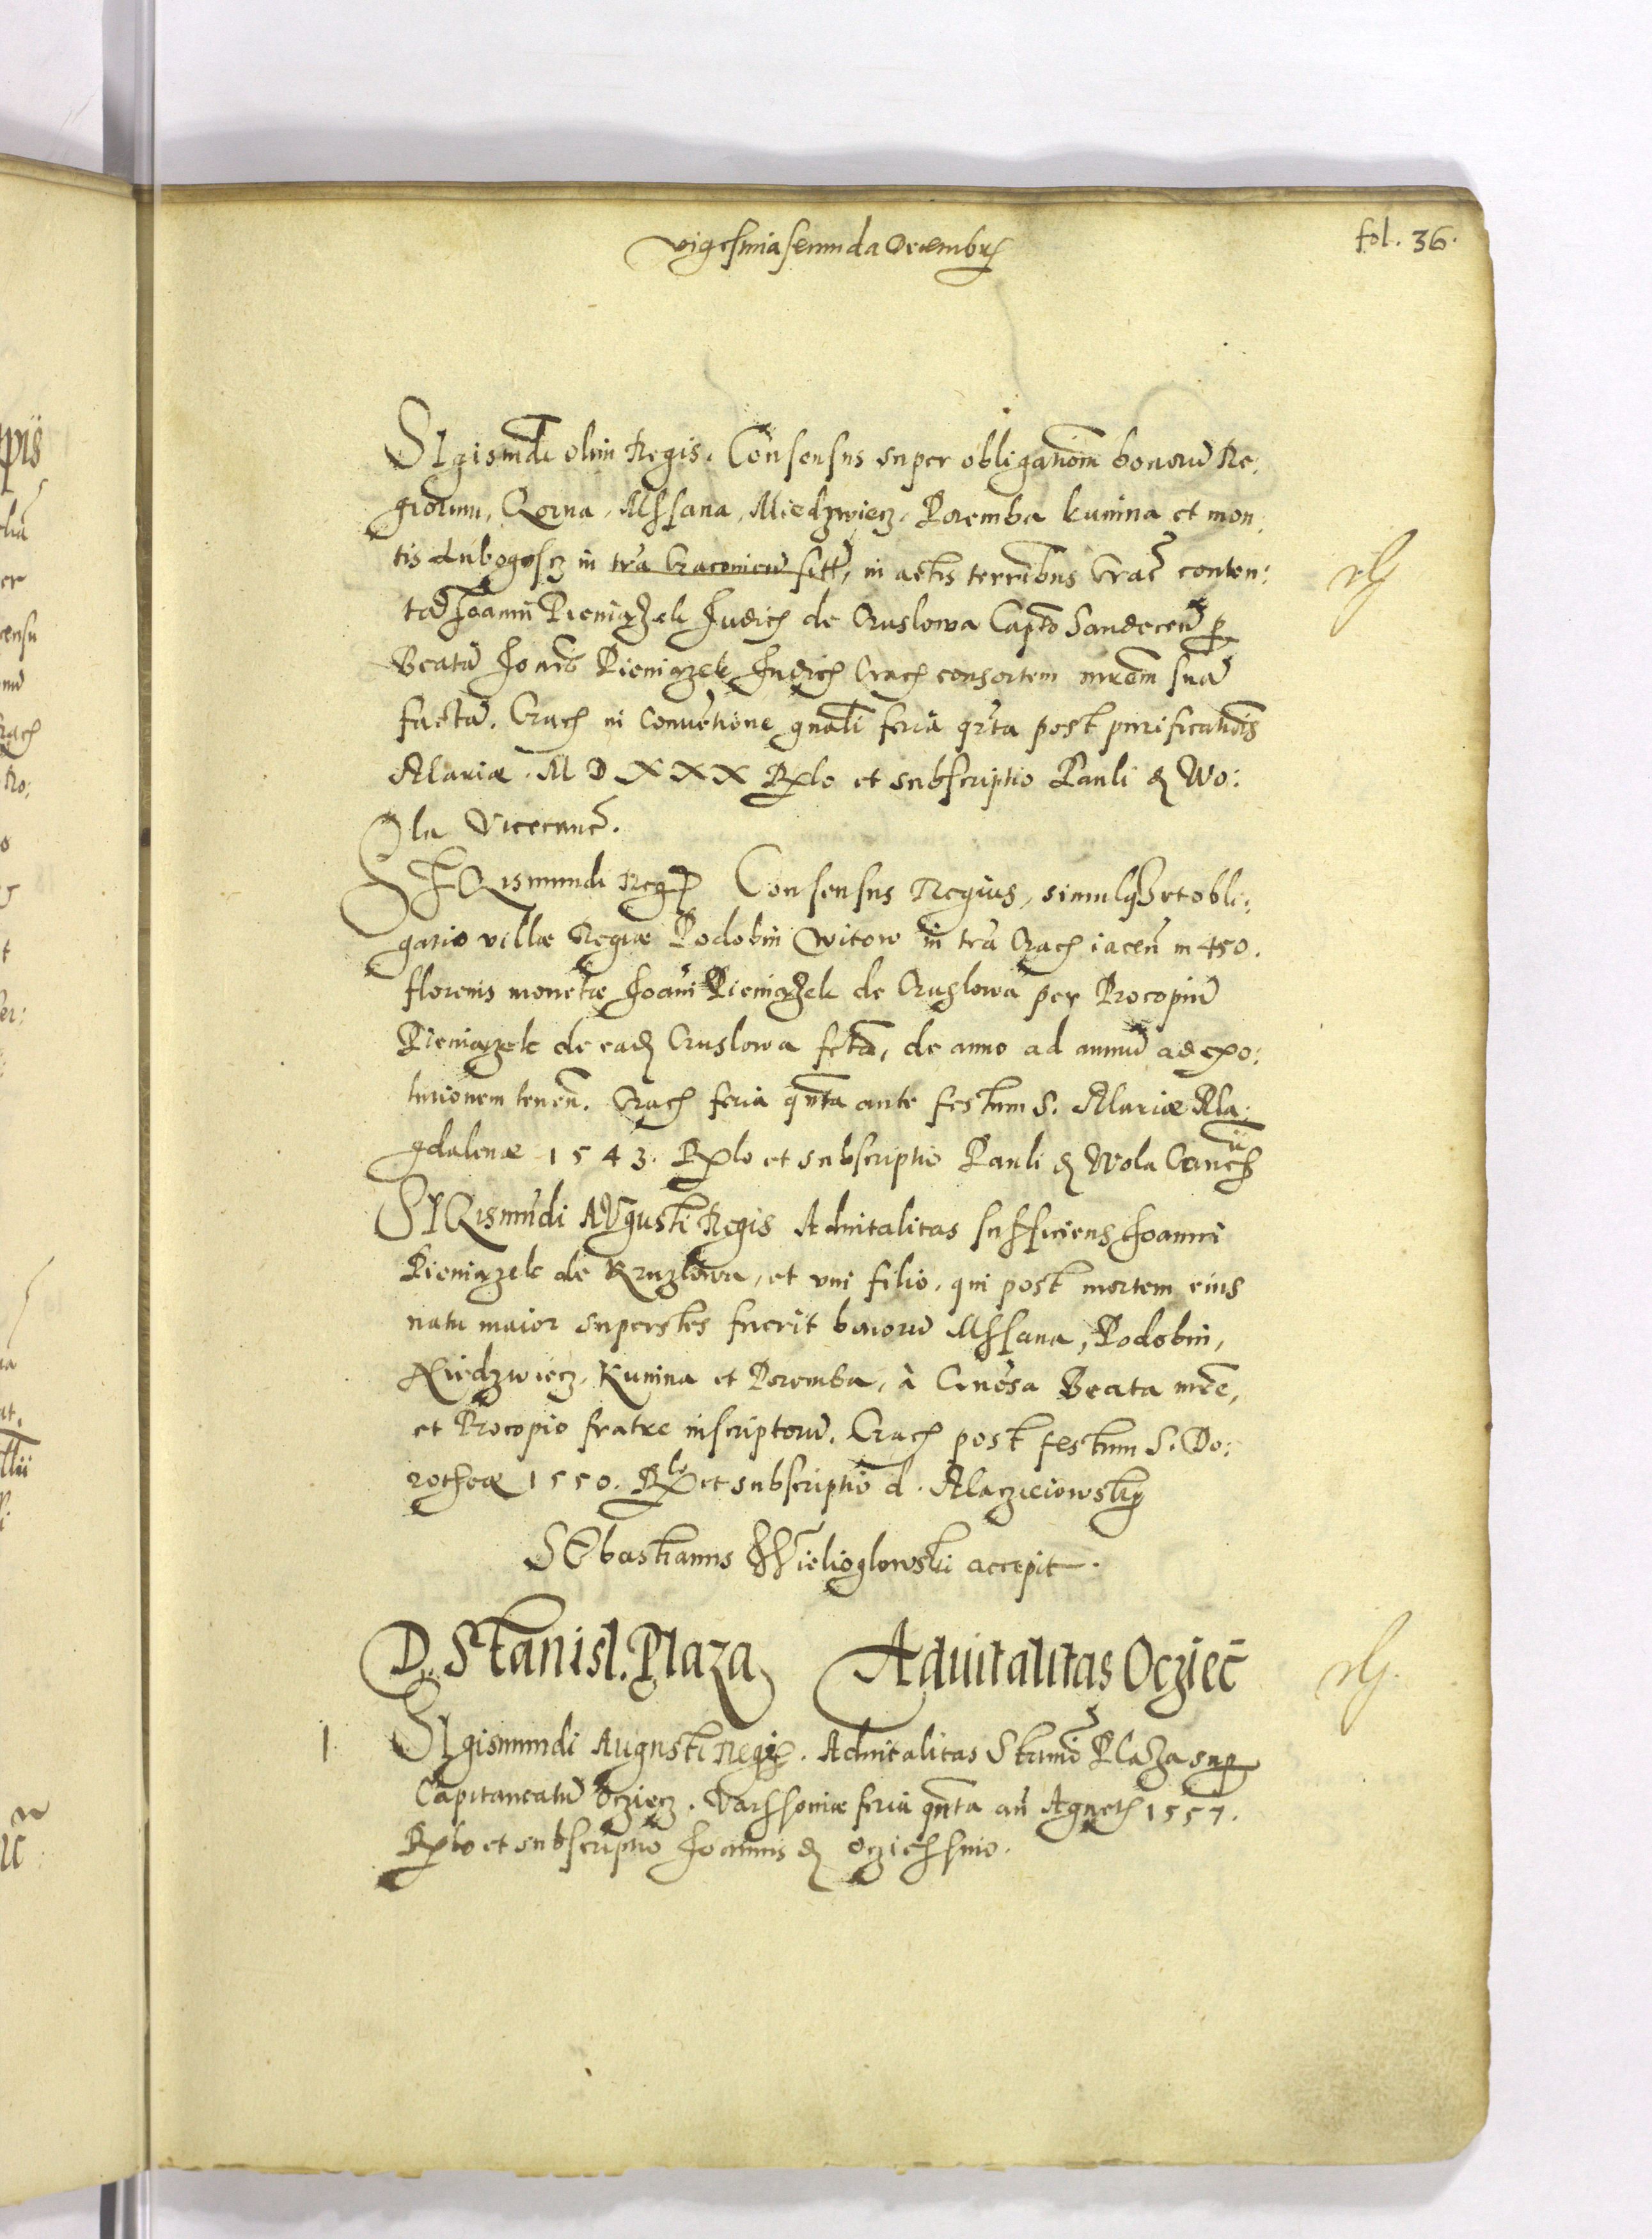 vigesima secunda Decembris
fol. 36.
SIgismūdi olim Regis. Consensus super obligationem bonorū Re:
giorum, Qorna, Mssana, Miedzwiecz, Poremba kunina et mon:
tis Lubogoscz in tr̄a Cracoviēn sitt, in actis terrestribus Crac̄ conten:
tā Joanni Pieniązek Judici de Cruslowa Capt̄o Sandeceñ per
Beatā Joānis Pieniązek Judicis Crac̄ consortem mr̄em suā
factā. Crac̄ in Conventione gnāli feria qr̄ta post purificatiōis
Mariæ. M D XXX Sigillo et subscriptio Pauli de Wo:
la Vicecanc̄.
SIGismundi Regis Consensus Regius, simulq3 et obli:
gatio villæ Regiæ Podobin Witow in tr̄a Crac̄ iaceñ in 450.
florenis monetæ Joāni Pieniązek de Cruslowa per Procopiū
Pieniązek de eadē Cruslowa fctā, de anno ad annū ad exo:
lutionem teneñ. Crac̄ feria qn̄ta ante festum S. Mariæ Ma:
gdalenæ 1543. Sigillo et subscriptio Pauli de Wola Canc̄
SIGismūdi AVgusti Regis Advitalitas sufficiens Joanni
Pieniązek de Kruzlowa, et vni filio, qui post mortem eius
natu maior superstes fuerit bonorū Mssana, Podobin,
Niedzwiecz, Kunina et Poremba, à Genēsa Beata mr̄e,
et Procopio fratre inscriptorū. Crac̄ post festum S. Do:
rotheæ 1550. Sigillo et subscriptio d. Macziciowsky
SEbastianus Wielioglowski accepit.
D. Stanisl. Plaza Advitalitas Ocziec̄
1. SIgismundi Augusti Regis. Advitalitas Stanīo Plaza super
Capitaneatū Ocziecz. Varssoviæ feria qn̄ta añ Agnetis 1557.
Sigillo et subscriptio Joannis de Ocziessino.